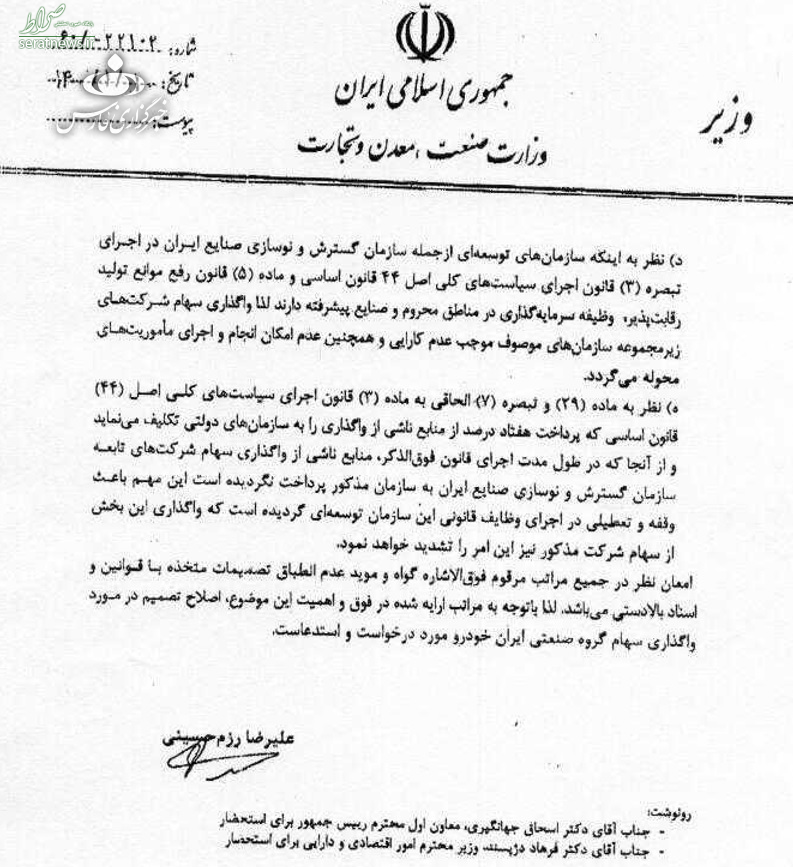 صراط
seratnews.ir
خبرگزاری فارس
جمهوری اسلامی ایران
وزارت صنعت، معدن و تجارت
وزیر
شماره: ۶۰/۰۲۲۱۰۲
تاریخ:
پیوست:
د) نظر به اینکه سازمان‌های توسعه‌ای ازجمله سازمان گسترش و نوسازی صنایع ایران در اجرای
تبصره (۳) قانون اجرای سیاست‌های کلی اصل ۴۴ قانون اساسی و ماده (۵) قانون رفع موانع تولید
رقابت‌پذیر، وظیفه سرمایه‌گذاری در مناطق محروم و صنایع پیشرفته دارند لذا واگذاری سهام شرکت‌های
زیرمجموعه سازمان‌های موصوف موجب عدم کارایی و همچنین عدم امکان انجام و اجرای مأموریت‌های
محوله می‌گردد.
ه) نظر به ماده (۲۹) و تبصره (۷) الحاقی به ماده (۳) قانون اجرای سیاست‌های کلی اصل (۴۴)
قانون اساسی که پرداخت هفتاد درصد از منابع ناشی از واگذاری را به سازمان‌های دولتی تکلیف می‌نماید
و از آنجا که در طول مدت اجرای قانون فوق‌الذکر، منابع ناشی از واگذاری سهام شرکت‌های تابعه
سازمان گسترش و نوسازی صنایع ایران به سازمان مذکور پرداخت نگردیده است این مهم باعث
وقفه و تعطیلی در اجرای وظایف قانونی این سازمان توسعه‌ای گردیده است که واگذاری این بخش
از سهام شرکت مذکور نیز این امر را تشدید خواهد نمود.
امعان نظر در جمیع مراتب مرقوم فوق‌الاشاره گواه و موید عدم الطباق تصمیمات متخذه با قوانین و
اسناد بالادستی می‌باشد. لذا باتوجه به مراتب ارایه شده در فوق و اهمیت این موضوع، اصلاح تصمیم در مورد
واگذاری سهام گروه صنعتی ایران خودرو مورد درخواست و استدعاست.
علیرضا رزم حسینی
رونوشت:
- جناب آقای دکتر اسحاق جهانگیری، معاون اول محترم رییس جمهور برای استحضار
- جناب آقای دکتر فرهاد دژپسند، وزیر محترم امور اقتصادی و دارایی برای استحضار